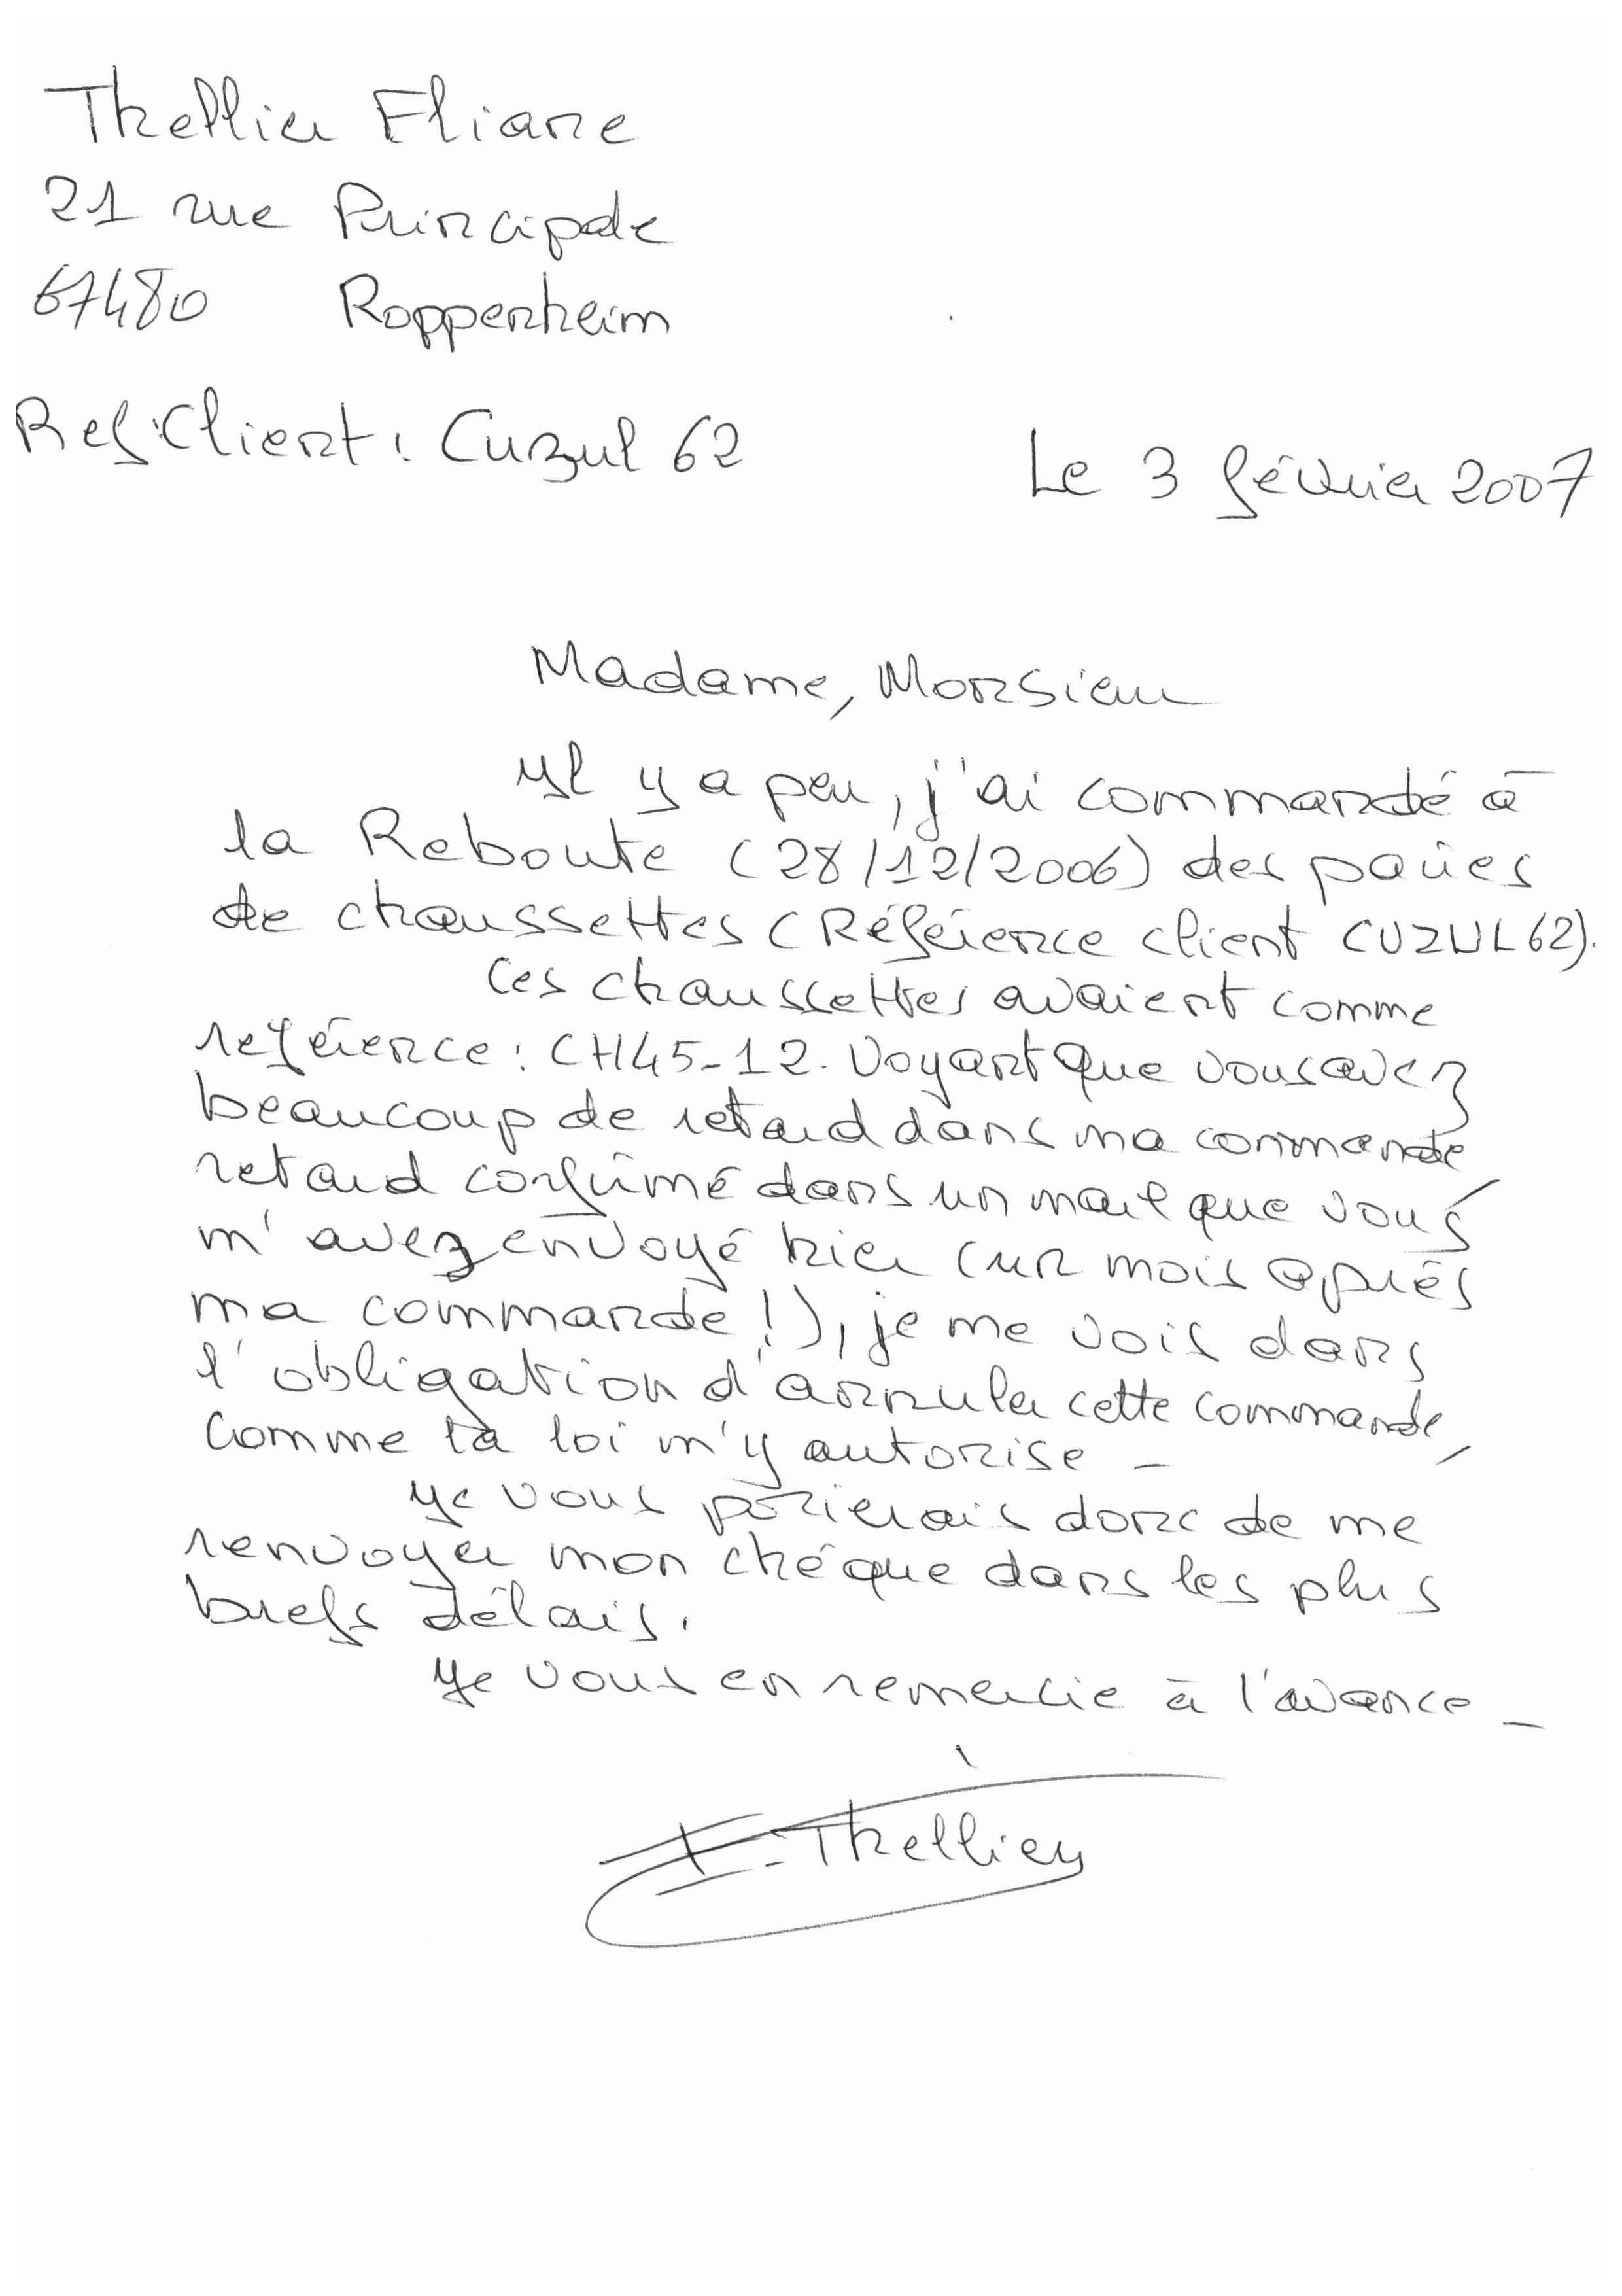 Thellier Eliane
21 rue Principale
67480 Roppenheim
Ref.Client : Cuzul 62
Le 3 février 2007
Madame, Monsieur
Il y a peu, j'ai commandé à
la Reboute (28/12/2006) des paires
de chaussettes (Référence client CUZUL62).
Ces chaussettes avaient comme
reférence : CH45-12. Voyant que vous avez
beaucoup de retard dans ma commande
retard confirmé dans un mail que vous
m'avez envoyé hier (un mois après
ma commande !), je me vois dans
l'obligation d'annuler cette commande,
comme la loi m'y autorise -
Je vous prierais donc de me
renvoyer mon chéque dans les plus
brefs délais.
Je vous en remercie à l'avance -
E. Thellier